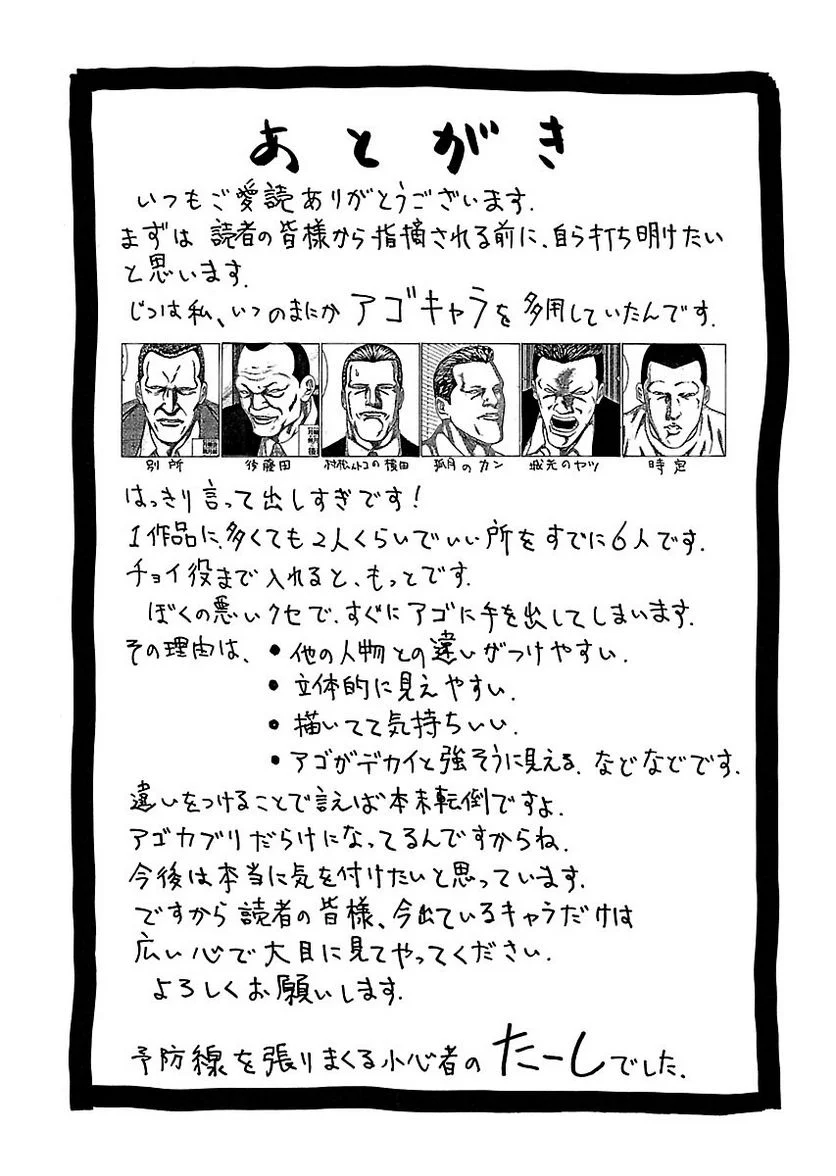 あとがき
いつもご愛読ありがとうございます.
まずは 読者の皆様から指摘される前に、自ら打ち明けたい
と思います.
じつは私、いつのまにか アゴキャラを 多用していたんです.
別所 後藤田 村松ムトコの横田 孤月のカン 城元のヤツ 時定
はっきり言って出しすぎです!
1作品に、多くても2人くらいでいい所をすでに6人です.
チョイ役まで入れると、もっとです.
ぼくの悪いクセで、すぐにアゴに手を出してしまいます.
その理由は、 • 他の人物との違いがつけやすい.
• 立体的に見えやすい.
• 描いてて気持ちいい.
• アゴがデカイと強そうに見える. などなどです.
違いをつけることで言えば本末転倒ですよ.
アゴカブリだらけになってるんですからね.
今後は本当に気を付けたいと思っています.
ですから 読者の皆様、今出ているキャラだけは
広い心で大目に見てやってください.
よろしくお願いします.
予防線を張りまくる小心者の たーし でした.